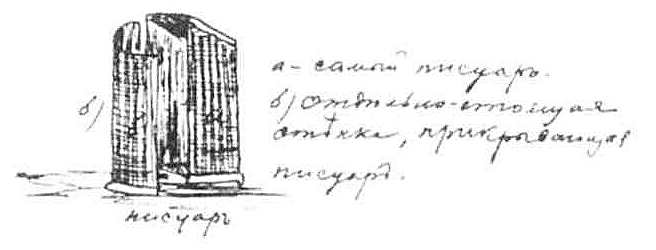 а - самый писуаръ.
б) отдѣльно-стоящая
стѣнка, прикрывающая
писуаръ.
б)
писуаръ